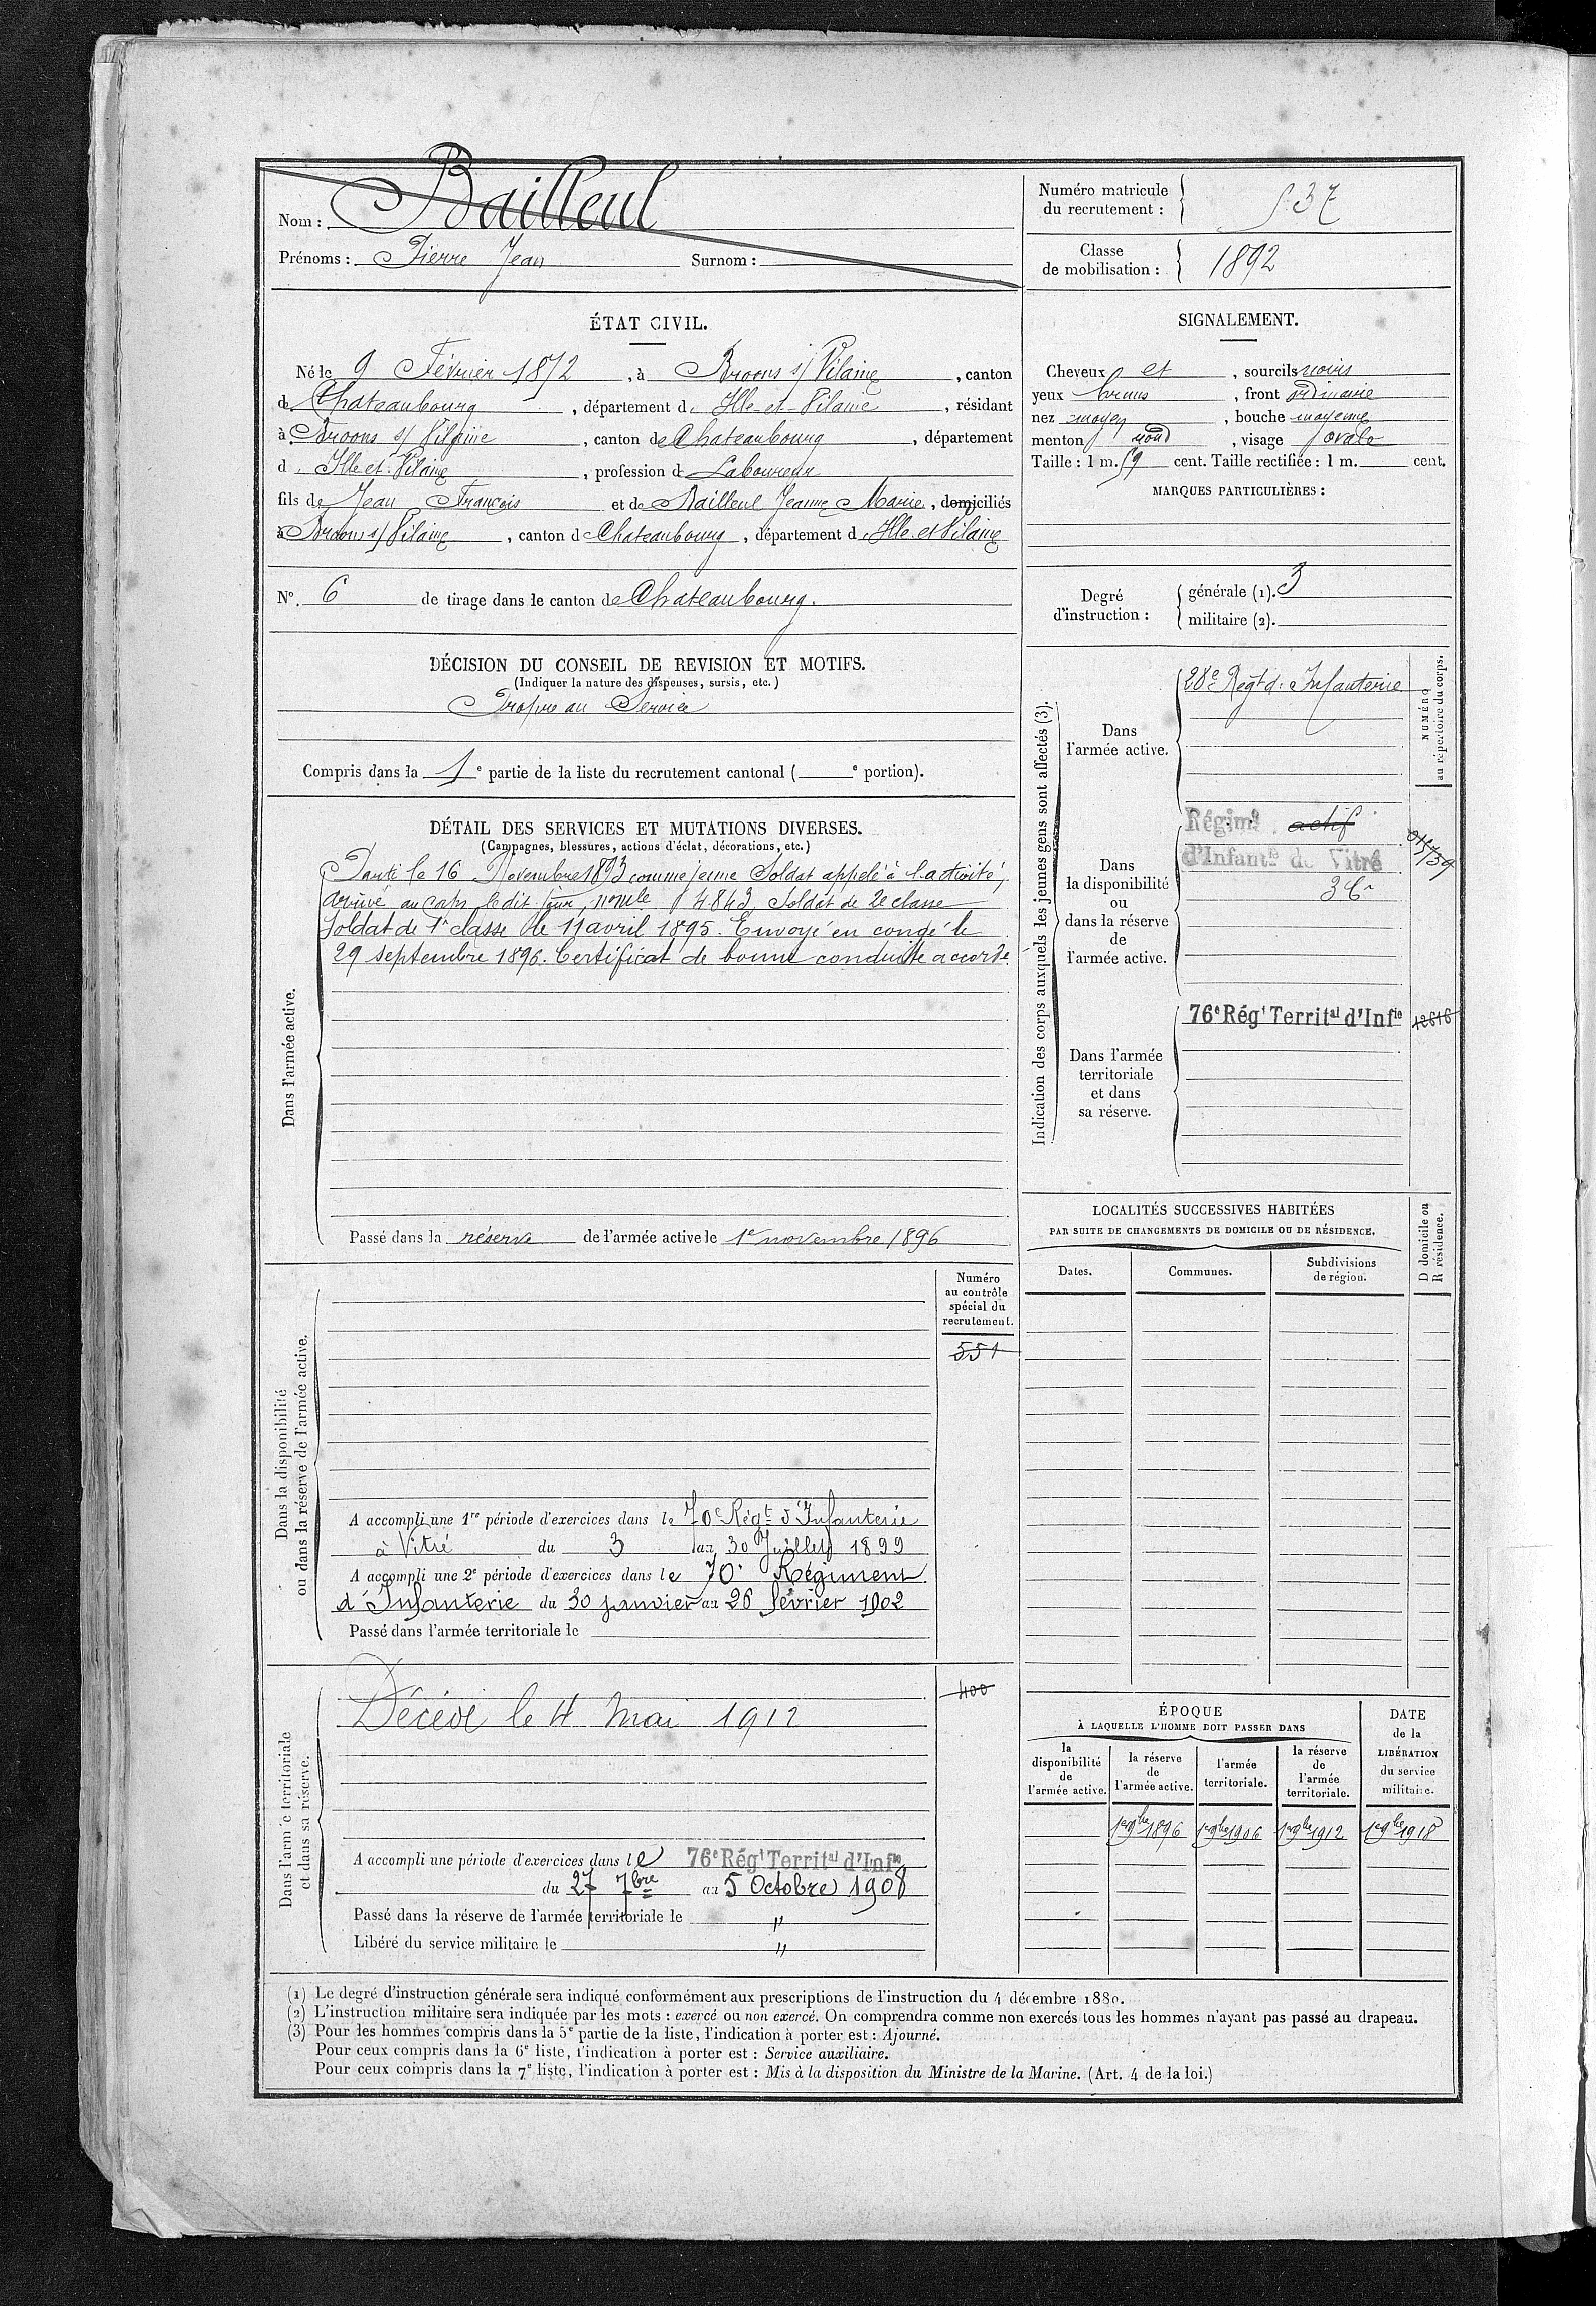 Nom : Bailleul
Prénoms : Pierre Jean Surnom :
Numéro matricule du recrutement : 537
Classe de mobilisation : 1892
ÉTAT CIVIL.
Né le 9 Février 1872, à Broons s/ Vilaine, canton
de Chateaubourg, département d. Ille-et-Vilaine, résidant
à Broons s/ Vilaine, canton de Chateaubourg, département
d. Ille et Vilaine, profession d Laboureur
fils de Jean François et de Bailleul Jeanne Marie, domiciliés
à Broons s/ Vilaine, canton d Chateaubourg, département d Ille et Vilaine
N°. 6 de tirage dans le canton de Chateaubourg.
SIGNALEMENT.
Cheveux et, sourcils noirs
yeux bruns, front ordinaire
nez moyen, bouche moyenne
menton rond, visage ovale
Taille : 1 m. 59 cent. Taille rectifiée : 1 m. cent.
MARQUES PARTICULIÈRES :
Degré d'instruction :
générale (1). 3
militaire (2).
DÉCISION DU CONSEIL DE REVISION ET MOTIFS.
(Indiquer la nature des dispenses, sursis, etc.)
Propre au Service
Compris dans la 1e partie de la liste du recrutement cantonal ( e portion).
DÉTAIL DES SERVICES ET MUTATIONS DIVERSES.
(Campagnes, blessures, actions d'éclat, décorations, etc.)
Dans l'armée active.
Parti le 16 Novembre 1893 comme jeune Soldat appelé à l'activité,
arrivé au corps ledit jour, nomle 4843, Soldat de 2e classe
Soldat de 1e classe le 11 avril 1895. Envoyé en congé le
29 septembre 1896. Certificat de bonne conduite accordé.
Passé dans la réserve de l'armée active le 1e novembre 1896
Indication des corps auxquels les jeunes gens sont affectés (3).
NUMÉRO au répertoire du corps.
Dans l'armée active.
28e Regt d. Infanterie
Dans la disponibilité ou dans la réserve de l'armée active.
Régimt actif
d'Infantie de Vitré
Dans l'armée territoriale et dans sa réserve.
76e Régt Territal d'Infie 12616
LOCALITÉS SUCCESSIVES HABITÉES
PAR SUITE DE CHANGEMENTS DE DOMICILE OU DE RÉSIDENCE.
Dates. Communes. Subdivisions de région.
D domicile ou R résidence.
Dans la disponibilité ou dans la réserve de l'armée active.
Numéro au contrôle spécial du recrutement.
551
A accompli une 1re période d'exercices dans le 70e Régt d'Infanterie
à Vitré du 3 au 30 Juillet 1899
A accompli une 2e période d'exercices dans le 70e Régiment
d'Infanterie du 30 janvier au 26 février 1902
Passé dans l'armée territoriale le
Dans l'armée territoriale et dans sa réserve.
400
Décédé le 4 Mai 1912
A accompli une période d'exercices dans le 76e Régt Territal d'Infie
du 27 7bre au 5 Octobre 1908
Passé dans la réserve de l'armée territoriale le "
Libéré du service militaire le "
ÉPOQUE
À LAQUELLE L'HOMME DOIT PASSER DANS
la disponibilité de l'armée active.
la réserve de l'armée active.
l'armée territoriale.
la réserve de l'armée territoriale.
DATE de la LIBÉRATION du service militaire.
1er 9bre 1896 1er 9bre 1906 1er 9bre 1912 1er 9bre 1918
(1) Le degré d'instruction générale sera indiqué conformément aux prescriptions de l'instruction du 4 décembre 1889.
(2) L'instruction militaire sera indiquée par les mots : exercé ou non exercé. On comprendra comme non exercés tous les hommes n'ayant pas passé au drapeau.
(3) Pour les hommes compris dans la 5e partie de la liste, l'indication à porter est : Ajourné.
Pour ceux compris dans la 6e liste, l'indication à porter est : Service auxiliaire.
Pour ceux compris dans la 7e liste, l'indication à porter est : Mis à la disposition du Ministre de la Marine. (Art. 4 de la loi.)